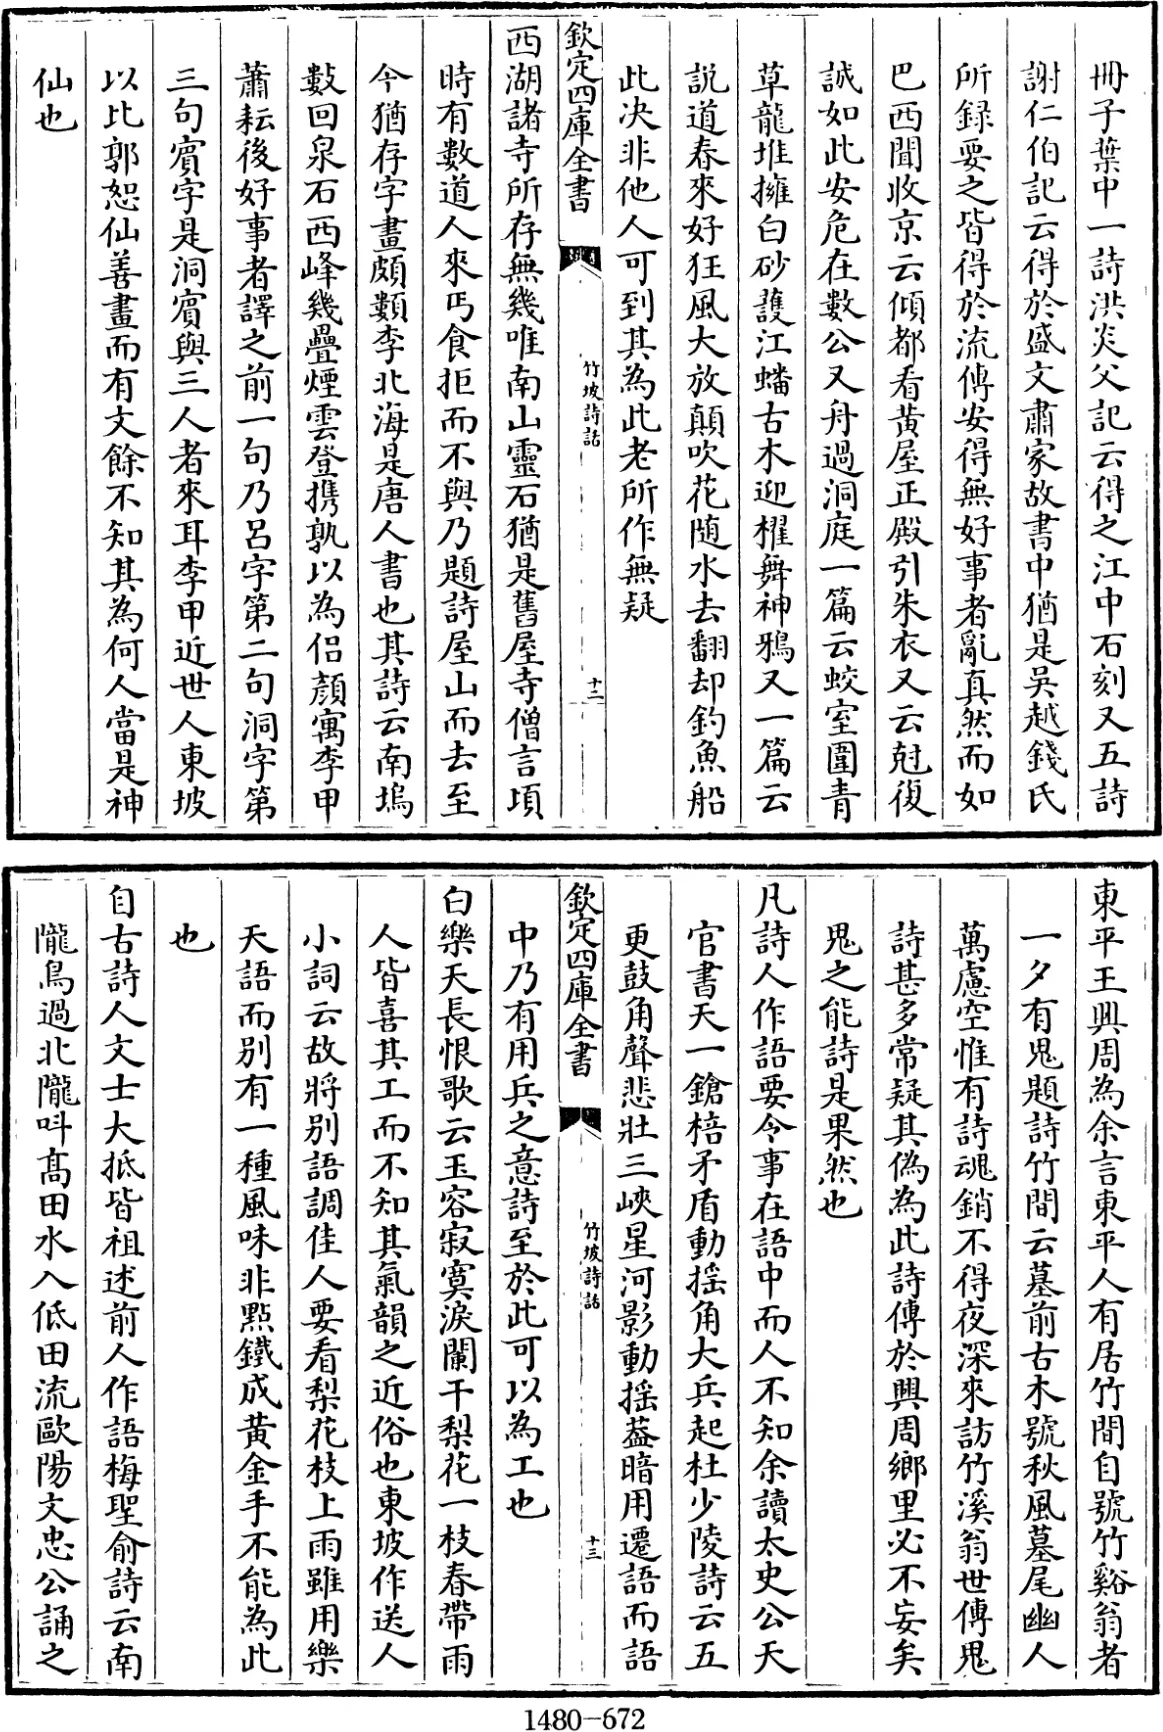 冊子葉中一詩洪炎父記云得之江中石刻又五詩
謝仁伯記云得於盛文肅家故書中猶是吳越錢氏
所録要之皆得於流傳安得無好事者亂真然而如
巴西聞收京云傾都看黄屋正殿引朱衣又云尅復
誠如此安危在數公又舟過洞庭一篇云蛟室圍青
草龍堆擁白砂護江蟠古木迎櫂舞神鴉又一篇云
説道春來好狂風大放顛吹花隨水去翻却釣魚船
此决非他人可到其為此老所作無疑
欽定四庫全書
竹坡詩話
十二
西湖諸寺所存無幾唯南山靈石猶是舊屋寺僧言頃
時有數道人來丐食拒而不與乃題詩屋山而去至
今猶存字畫頗類李北海是唐人書也其詩云南塢
數回泉石西峰幾疊煙雲登携孰以為侣顏寓李甲
蕭耘後好事者譯之前一句乃吕字第二句洞字第
三句賔字是洞賔與三人者來耳李甲近世人東坡
以比郭恕仙善畫而有文餘不知其為何人當是神
仙也
東平王興周為余言東平人有居竹間自號竹谿翁者
一夕有鬼題詩竹間云墓前古木號秋風墓尾幽人
萬慮空惟有詩魂銷不得夜深來訪竹溪翁世傳鬼
詩甚多常疑其偽為此詩傳於興周鄉里必不妄矣
鬼之能詩是果然也
凡詩人作語要令事在語中而人不知余讀太史公天
官書天一鎗棓矛盾動摇角大兵起杜少陵詩云五
更鼓角聲悲壯三峽星河影動摇葢暗用遷語而語
欽定四庫全書
竹坡詩話
十三
中乃有用兵之意詩至於此可以為工也
白樂天長恨歌云玉容寂寞淚闌干梨花一枝春帶雨
人皆喜其工而不知其氣韻之近俗也東坡作送人
小詞云故將别語調佳人要看梨花枝上雨雖用樂
天語而别有一種風味非點鐵成黄金手不能為此
也
自古詩人文士大抵皆祖述前人作語梅聖俞詩云南
隴鳥過北隴呌髙田水入低田流歐陽文忠公誦之
1480-672